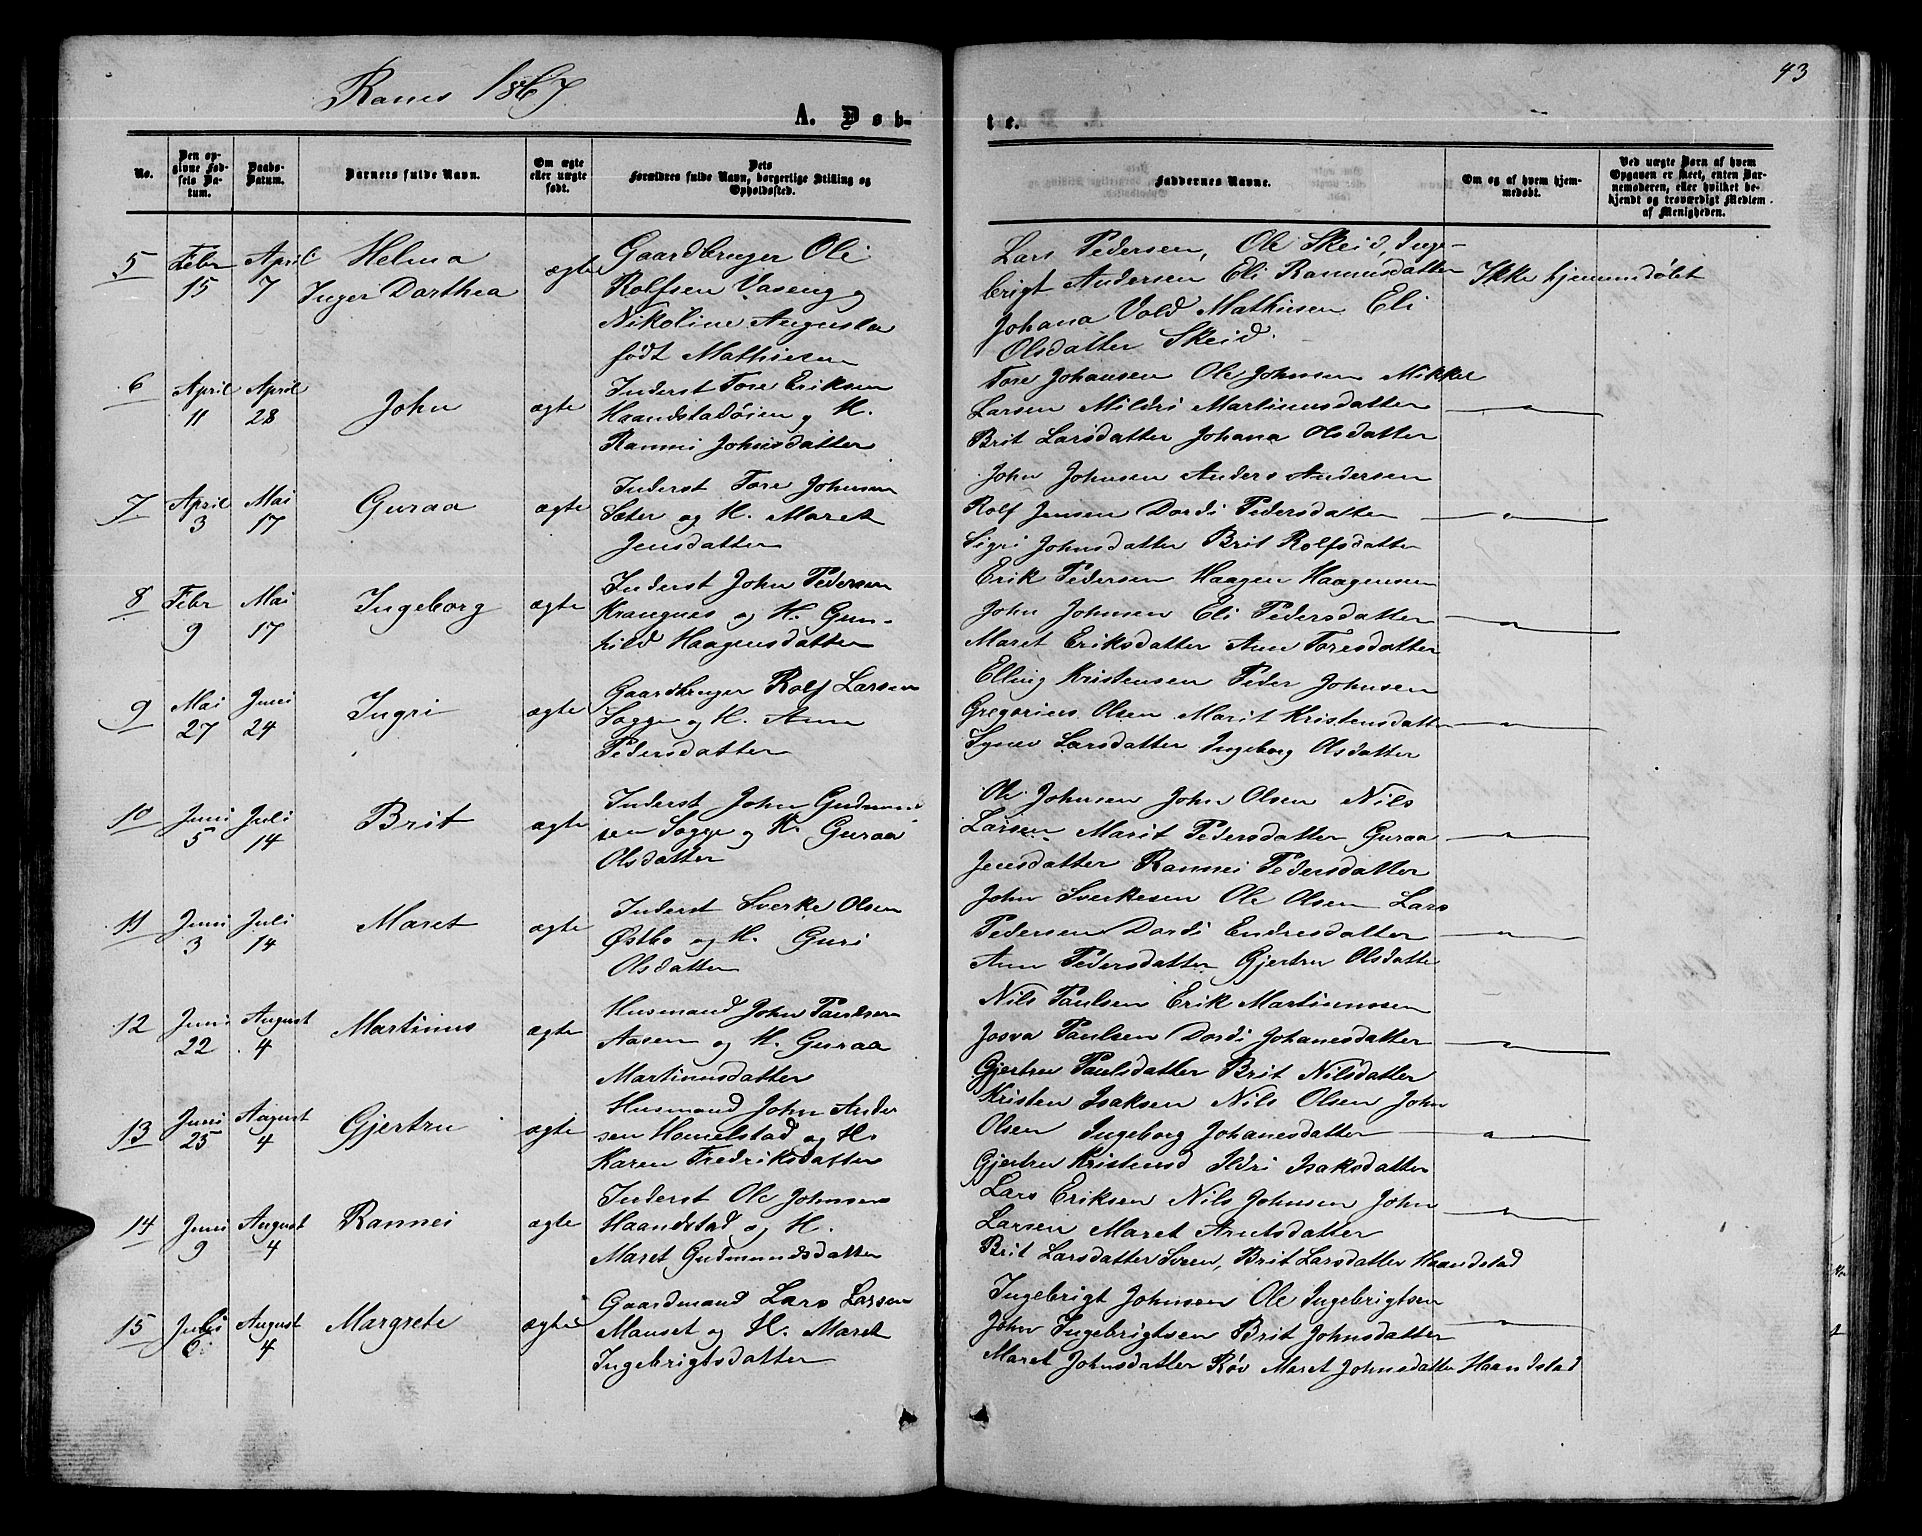 Ranes 1867
43
A. Døb-
te.
No.
Den opgivne Fødsels Datum.
Daabs-Datum.
Barnets fulde Navn.
Om ægte eller uægte født.
Dets Forældres fulde Navn, borgerlige Stilling og Opholdssted.
Faddernes Navne.
Om og af hvem hjemmedøbt.
Ved uægte Børn af hvem Opgaven er skeet, enten Barnemoderen, eller hvilket bekjendt og troværdigt Medlem af Menigheden.
5 Febr 15 April 7 Helma Inger Dorthea ægte
Gaardbruger Ole
Rolfsen Vaseng og
Nikoline Augusta
født Mathiesen
Lars Pedersen, Ole Skeid, Inge-
brigt Andersen Eli Rasmusdatter
Johana Vold Mathiesen Eli
Olsdatter Skeid.
Ikke hjemmedøbt
6 April 11 April 28 John ægte
Inderst Tore Eriksen
Haandstadøien og H.
Rannei Johnsdatter
Tore Johansen Ole Johnsen Mikkel
Larsen Mildri Martinusdatter
Brit Larsdatter Johana Olsdatter
— " —
7 April 3 Mai 17 Guraa ægte
Inderst Tore Johnsen
Sæter og H. Maret
Jensdatter
John Johnsen Anders Andersen
Rolf Jensen Dordi Pedersdatter
Sigri Johnsdatter Brit Rolfsdatter
— " —
8 Febr 9 Mai 17 Ingeborg ægte
Inderst John Pedersen
Krangnes og H. Gun-
hild Haagensdatter
Erik Pedersen Haagen Haagensen
John Johnsen Eli Pedersdatter
Maret Eriksdatter Ann Toresdatter
— " —
9 Mai 27 Juni 24 Ingri ægte
Gaardbruger Rolf Larsen
Sogge og H. Anne
Pedersdatter
Elling Kristensen Peder Johnsen
Gregorius Olsen Marit Kristensdatter
Synev Larsdatter Ingeborg Olsdatter
— " —
10 Juni 5 Juli 14 Brit ægte
Inderst John Gudmun
sen Sogge og H. Guraa
Olsdatter
Ole Johnsen John Olsen Nils
Larsen Marit Pedersdatter Guraa
Jensdatter Rannei Pedersdatter
— " —
11 Juni 3 Juli 14 Maret ægte
Inderst Sverke Olsen
Østbø og H. Guri
Olsdatter
John Sverkesen Ole Olsen Lars
Pedersen Dordi Endresdatter
Ann Pedersdatter Gjertru Olsdatte
— " —
12 Juni 22 August 4 Martinus ægte
Husmand John Paulsen
Aasen og H. Guraa
Martinusdatter
Nils Paulsen Erik Martinussen
Josva Paulsen Dordi Johanesdatter
Gjertru Paulsdatter Brit Nilsdatter
— " —
13 Juni 25 August 4 Gjertru ægte
Husmand John Ander
sen Homelstad og H.
Karen Fredriksdatter
Kristen Isaksen Nils Olsen John
Olsen Ingeborg Johanesdatter
Gjertru Kristensd Ildri Isaksdatter
— " —
14 Juni 9 August 4 Rannei ægte
Inderst Ole Johnsen
Haandstad og H.
Maret Gudmundsdatter
Lars Eriksen Nils Johnsen John
Larsen Maret Arntsdatter
Brit Larsdatter Sveen, Brit Larsdatter Haandstad
— " —
15 Juli 6 August 4 Margrete ægte
Gaardmand Lars Larsen
Mauset og H. Maret
Ingebrigtsdatter
Ingebrigt Johnsen Ole Ingebrigtsen
John Ingebrigtsen Brit Johnsdatter
Maret Johnsdatter Røv Maret Johnsdatter Haandstad
— " —